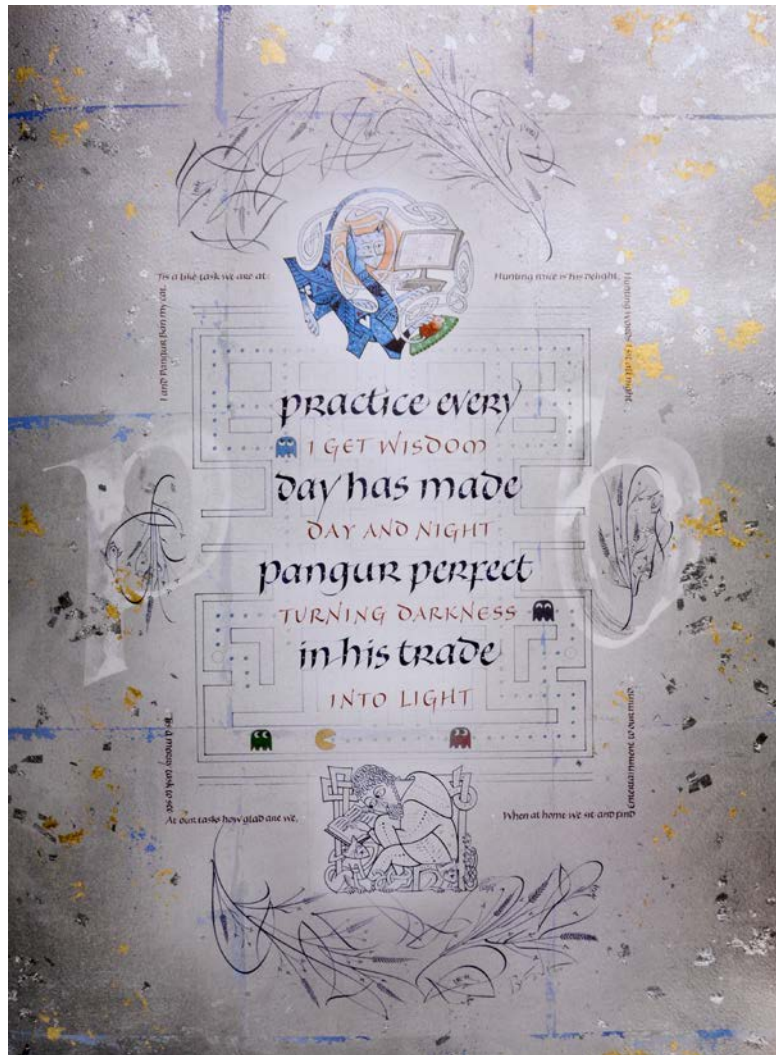 I and Pangur Ban my cat,
'Tis a like task we are at:
Hunting mice is his delight,
Hunting words I sit all night.
practice every
I GET WISDOM
day has made
DAY AND NIGHT
pangur perfect
TURNING DARKNESS
in his trade
INTO LIGHT
p
o
'Tis a merry task to see
At our tasks how glad are we,
When at home we sit and find
Entertainment to our mind